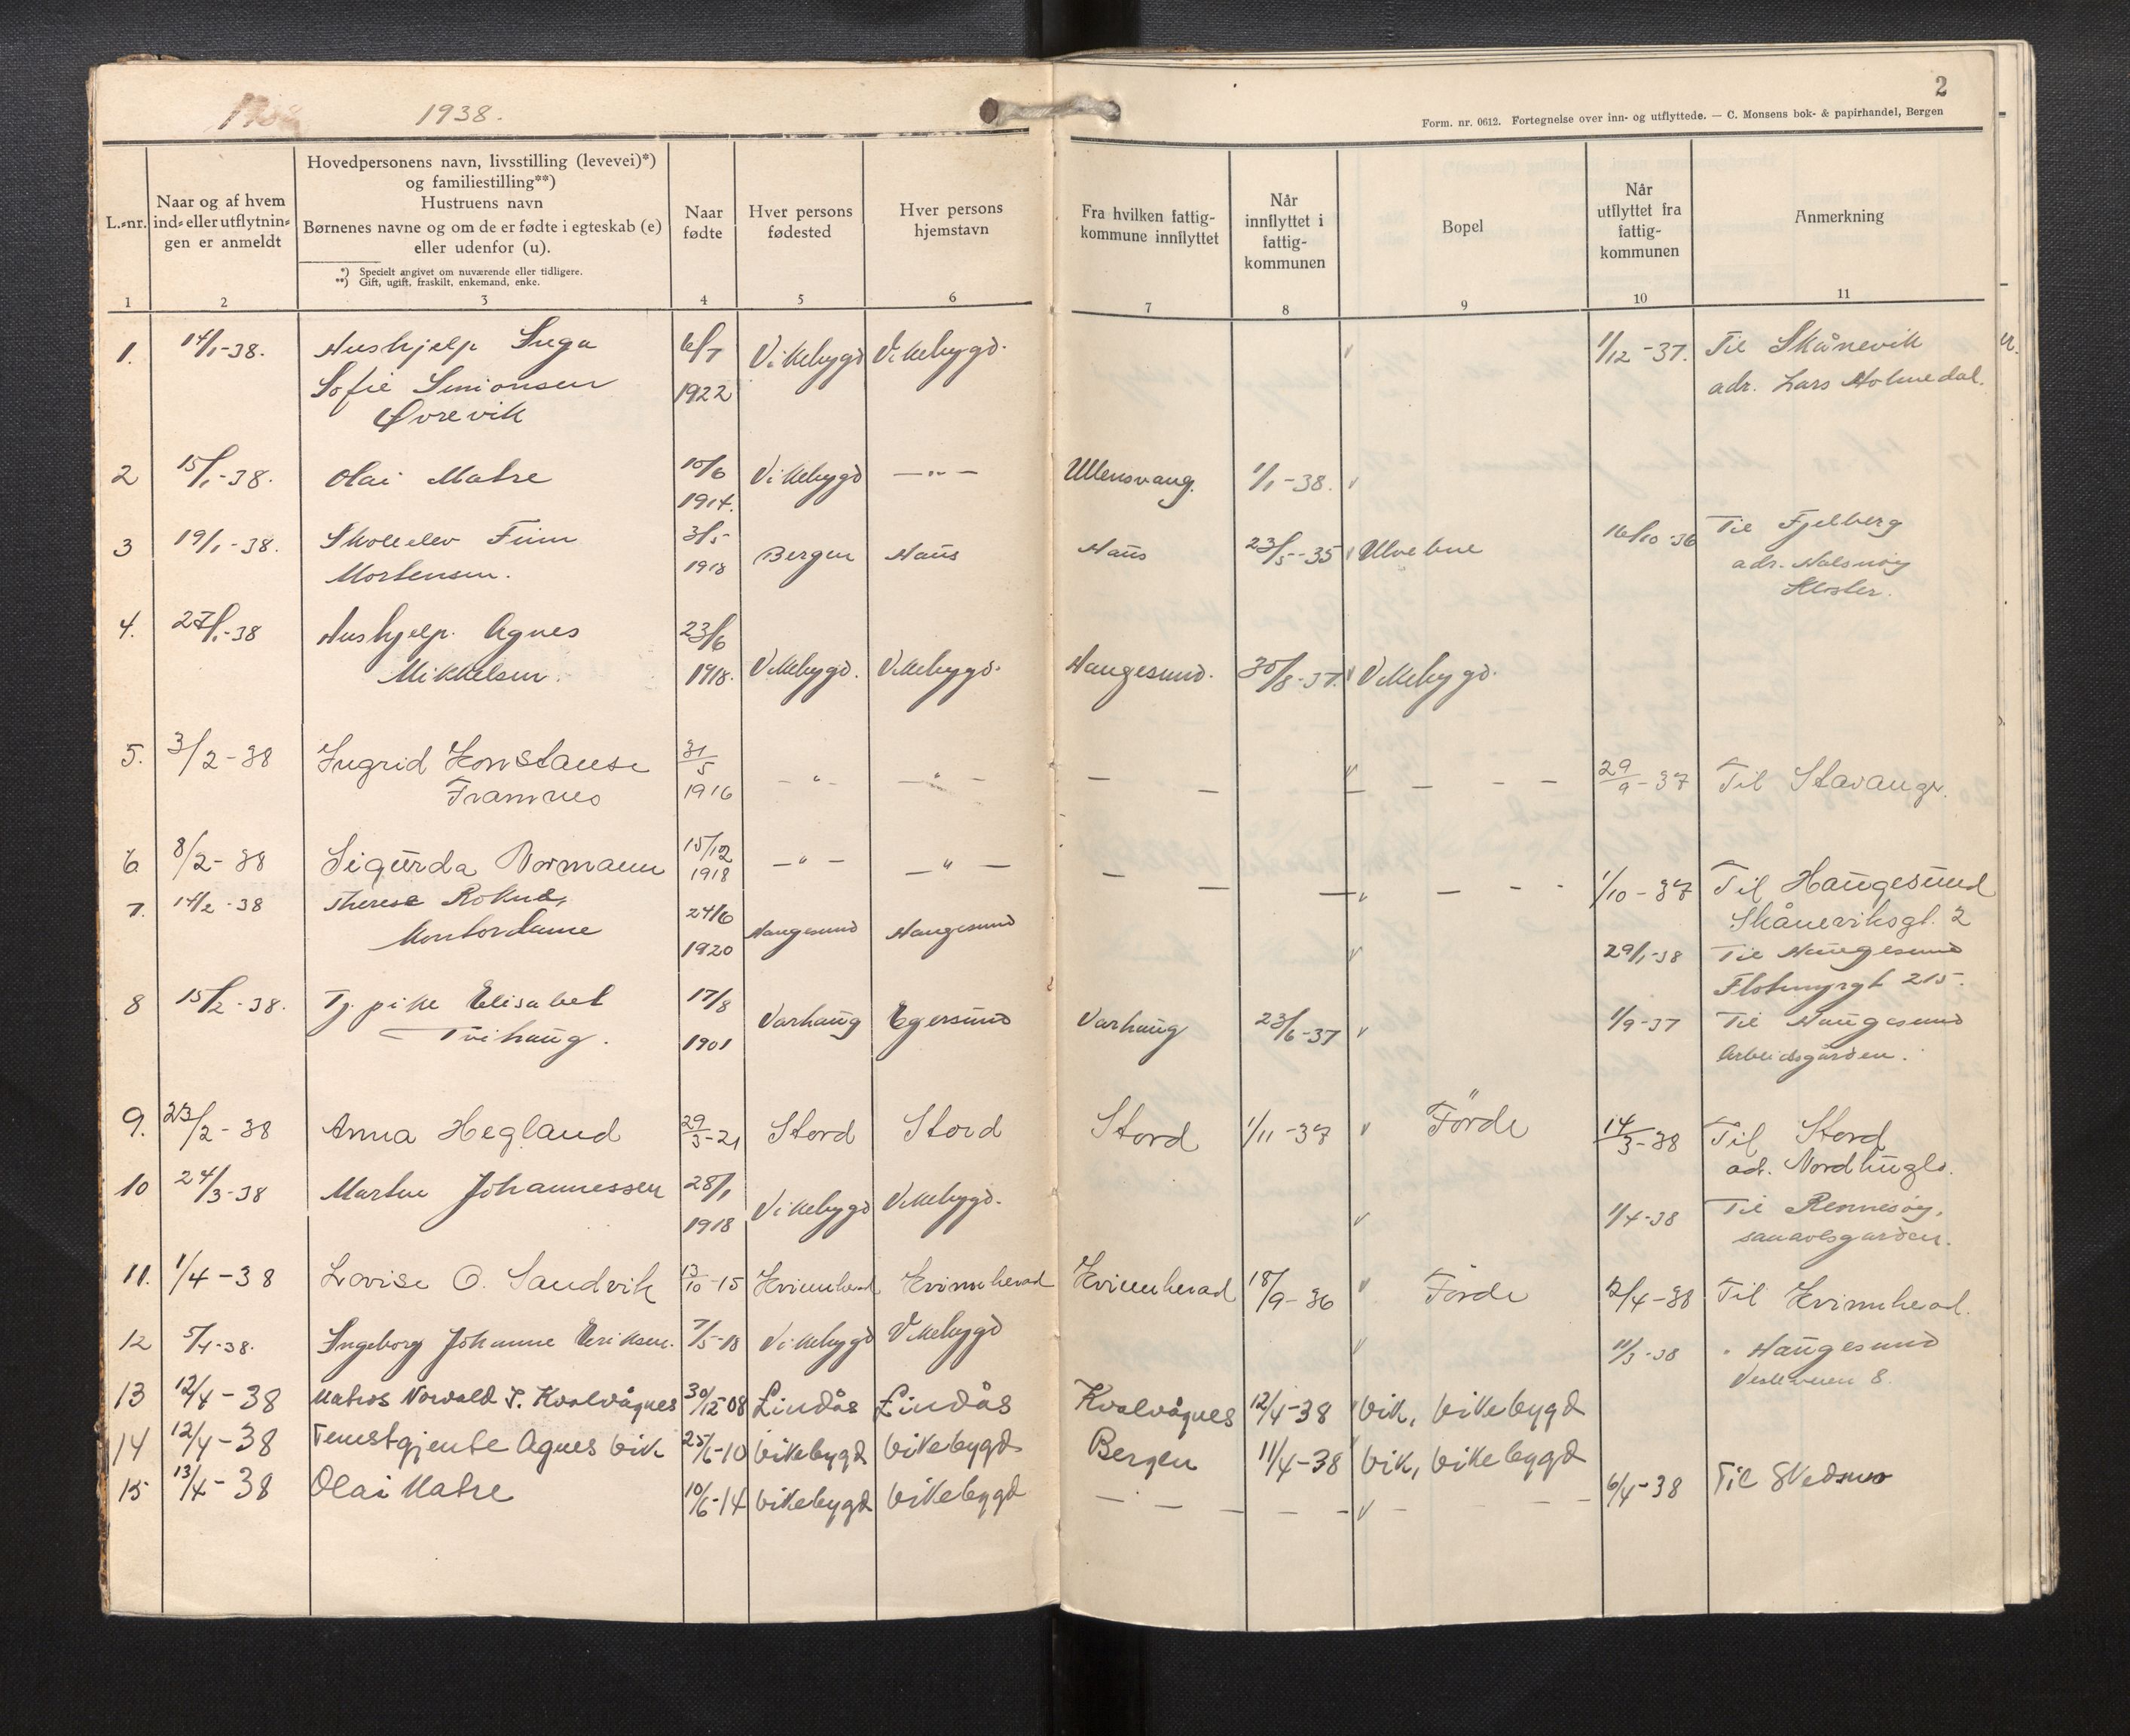 1938.
2
Form. nr. 0612. Fortegnelse over inn- og utflyttede. — C. Monsens bok- & papirhandel, Bergen
L.-nr.
Naar og af hvem ind- eller utflytnin- gen er anmeldt
Hovedpersonens navn, livsstilling (levevei)*)
og familiestilling**)
Hustruens navn
Børnenes navne og om de er fødte i egteskab (e)
eller udenfor (u).
*) Specielt angivet om nuværende eller tidligere.
**) Gift, ugift, fraskilt, enkemand, enke.
Naar fødte
Hver persons fødested
Hver persons hjemstavn
Fra hvilken fattig- kommune innflyttet
Når innflyttet i fattig- kommunen
Bopel
Når utflyttet fra fattig- kommunen
Anmerkning
1 2 3 4 5 6 7 8 9 10 11
1. 14/1-38. Hushjelp Inga 6/7 Vikebygd Vikebygd. 1/12-37. Til Skånevik
Sofie Simonsen 1922 adr. Lars Holmedal.
Øvrevik
2 15/1-38. Olai Matre 10/6 Vikebygd —"— Ullensvang. 1/1-38.
1914.
3 19/1-38. Skoleelev Finn 3/5- Bergen Haus Haus 23/5-35 Ulvebne 16/10-36 Til Fjelberg
Mortensen. 1918 adr. Halsnøy
Kloster.
4. 27/1-38 Hushjelp. Agnes 23/6
Mikkelsen. 1918. Vikebygd. Vikebygd. Haugesund. 30/8-37. Vikebygd.
5. 3/2-38 Ingrid Konstanse 31/5 —"— —"— — — — — — — 29/9-37 Til Stavanger.
Framnes 1916
6 8/2-38 Sigurda Normann 15/12 —"— —"— — — — — — - 1/10-37 Til Haugesund
1918 Skåneviksgt. 2
7. 14/2-38 Therese Rokne, 24/6 Haugesund Haugesund 29/1-38 Til Haugesund
Kontordame 1920 Flotmyrgt 215.
8 15/2-38. Tj. pike Elisabet 17/8 Varhaug Egersund Varhaug 23/6-37 1/9-37 Til Haugesund
Tvihaug. 1901 Arbeidsgården.
9. 23/2-38 Anna Hegland 29/3-21 Stord Stord Stord 1/11-37 Förde 14/3-38 Til Stord
ad. Nordhuglo.
10 24/3-38 Martin Johannessen 28/1 Vikebygd Vikebygd. 1/4-38 Til Rennesøy,
1918
11. 1/4-38 Lovise O. Sandvik 13/10-15 Kvinnherad Kvinnherad Kvinnherad 18/9-36 Förde 2/4-38 Til Kvinnherad.
12 5/4-38. Ingeborg Johanne Eriksen. 7/5-18 Vikebygd Vikebygd 11/3-38 " Haugesund
8.
13 12/4-38 Matros Norvald J. Kvalvågnes 30/12-08 Lindås Lindås Kvalvågnes 12/4-38 Vik, Vikebygd
14 12/4-38 Tenestgjente Agnes Vik 25/6-10 Vikebygd Vikebygd Bergen 11/4-38 Vik, Vikebygd
15 13/4-38 Olai Matre 10/6-14 Vikebygd Vikebygd — — — — — — — — 6/4-38 Til Skedsmo